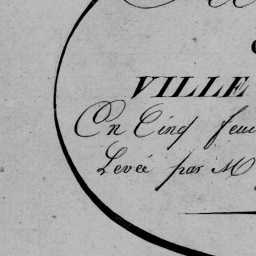 VILLE
En Cinq feui
Levée par M